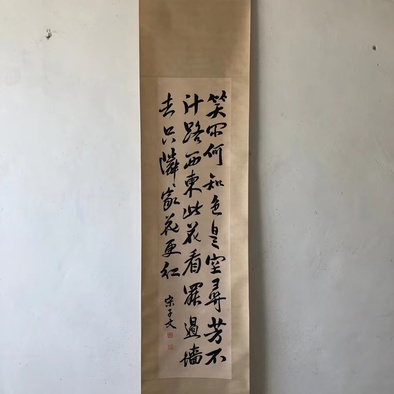 笑你何知色是空尋芳不
计路西東此花看罷過墻
去只隣家花更红
宋子文